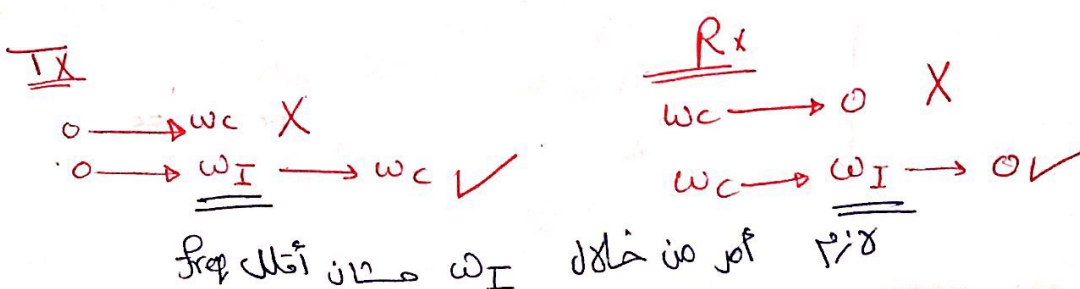 TX
0 → ωc X
0 → ωI → ωc ✓
Rx
ωc → 0 X
ωc → ωI → 0 ✓
لازم أمر من خلال ωI مشان أقلل freq